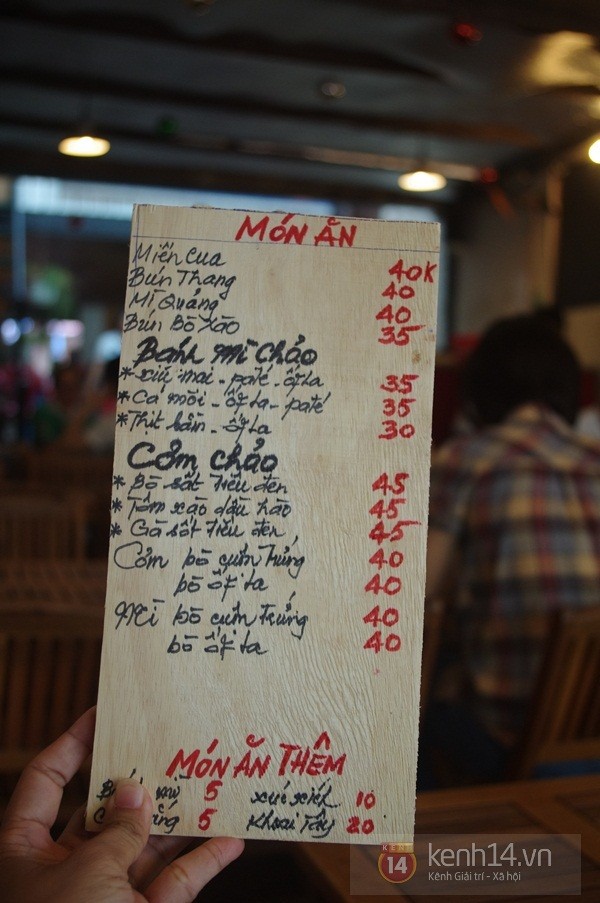 MÓN ĂN
Miến Cua 40K
Bún Thang 40
Mì Quảng 40
Bún Bò Xào 35
Bánh mì chảo
* xíu mai - paté - ốp la 35
* Cá mòi - ốp la - paté 35
* Thịt bằm - ốp la 30
Cơm chảo
* Bò sốt tiêu đen 45
* Tôm xào dầu hào 45
* Gà sốt tiêu đen 45
Cơm bò cuộn trứng 40
bò ốp la 40
Mì bò cuộn trứng 40
bò ốp la 40
MÓN ĂN THÊM
mì 5 xúc xích 10
5 Khoai Tây 20
KÊNH 14 kenh14.vn
Kênh Giải trí - Xã hội